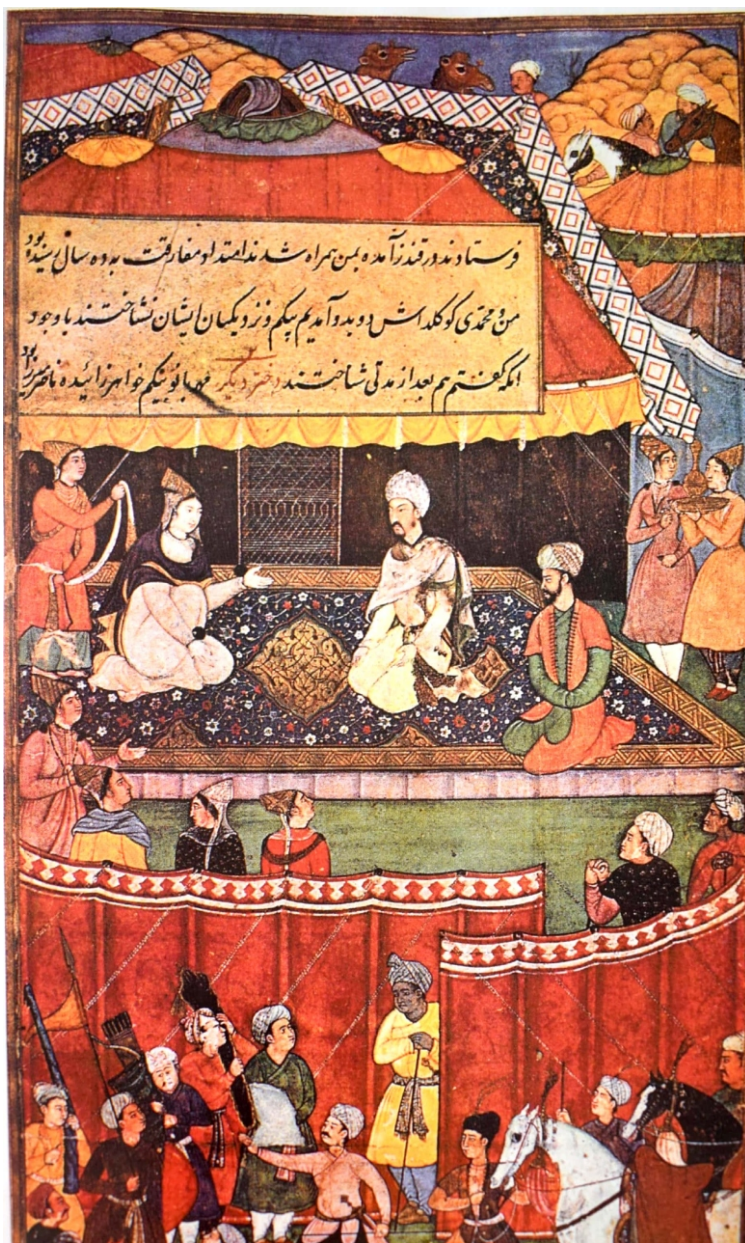 فرستادند در قندز آمده بمن همراه شدند امتداد مفارقت به ده سال رسیده بود
من و محمدی کوکلداش دو بدو آمدیم بیکم و نزدیکان ایشان نشناختند با وجود
آنکه گفتم هم بعد از مدتی شناختند دختر دیگر مهربانو بیکم خواهر زائیده ناصر میرزا بود